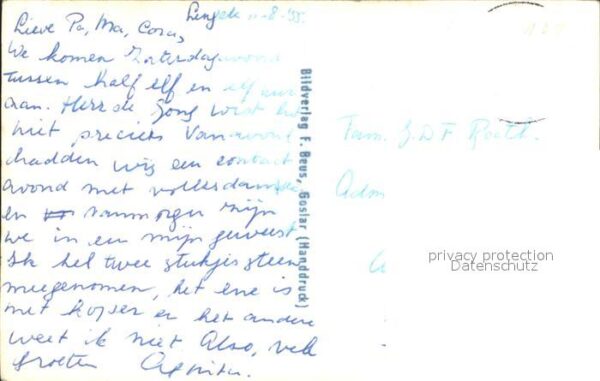 Lengele 11-8-'55.
Lieve Pa, Ma, Cora,
We komen Zaterdagavond
tussen half elf en elf uur
aan. Heer de Jong wist het
niet precies. Vanavond
hadden wij een contact
avond met volksdansen
en vanmorgen zijn
we in een mijn geweest
Ik heb twee stukjes steen
meegenomen, het ene is
met koper en het andere
weet ik niet Also, vele
groeten
Bildverlag F. Beus, Goslar (Handdruck)
Fam. J.D.F.
Adm
privacy protection
Datenschutz